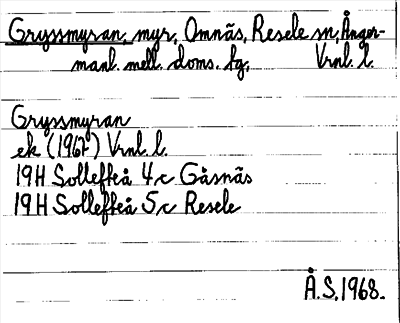 Gryssmyran, myr, Omnäs, Resele sn, Ånger-
manl. mell. doms. fg, Vrnl. l.
Gryssmyran
ek (1967) Vrnl. l.
19H Sollefteå 4,c Gåsnäs
19H Sollefteå 5,c Resele
Å.S. 1968.